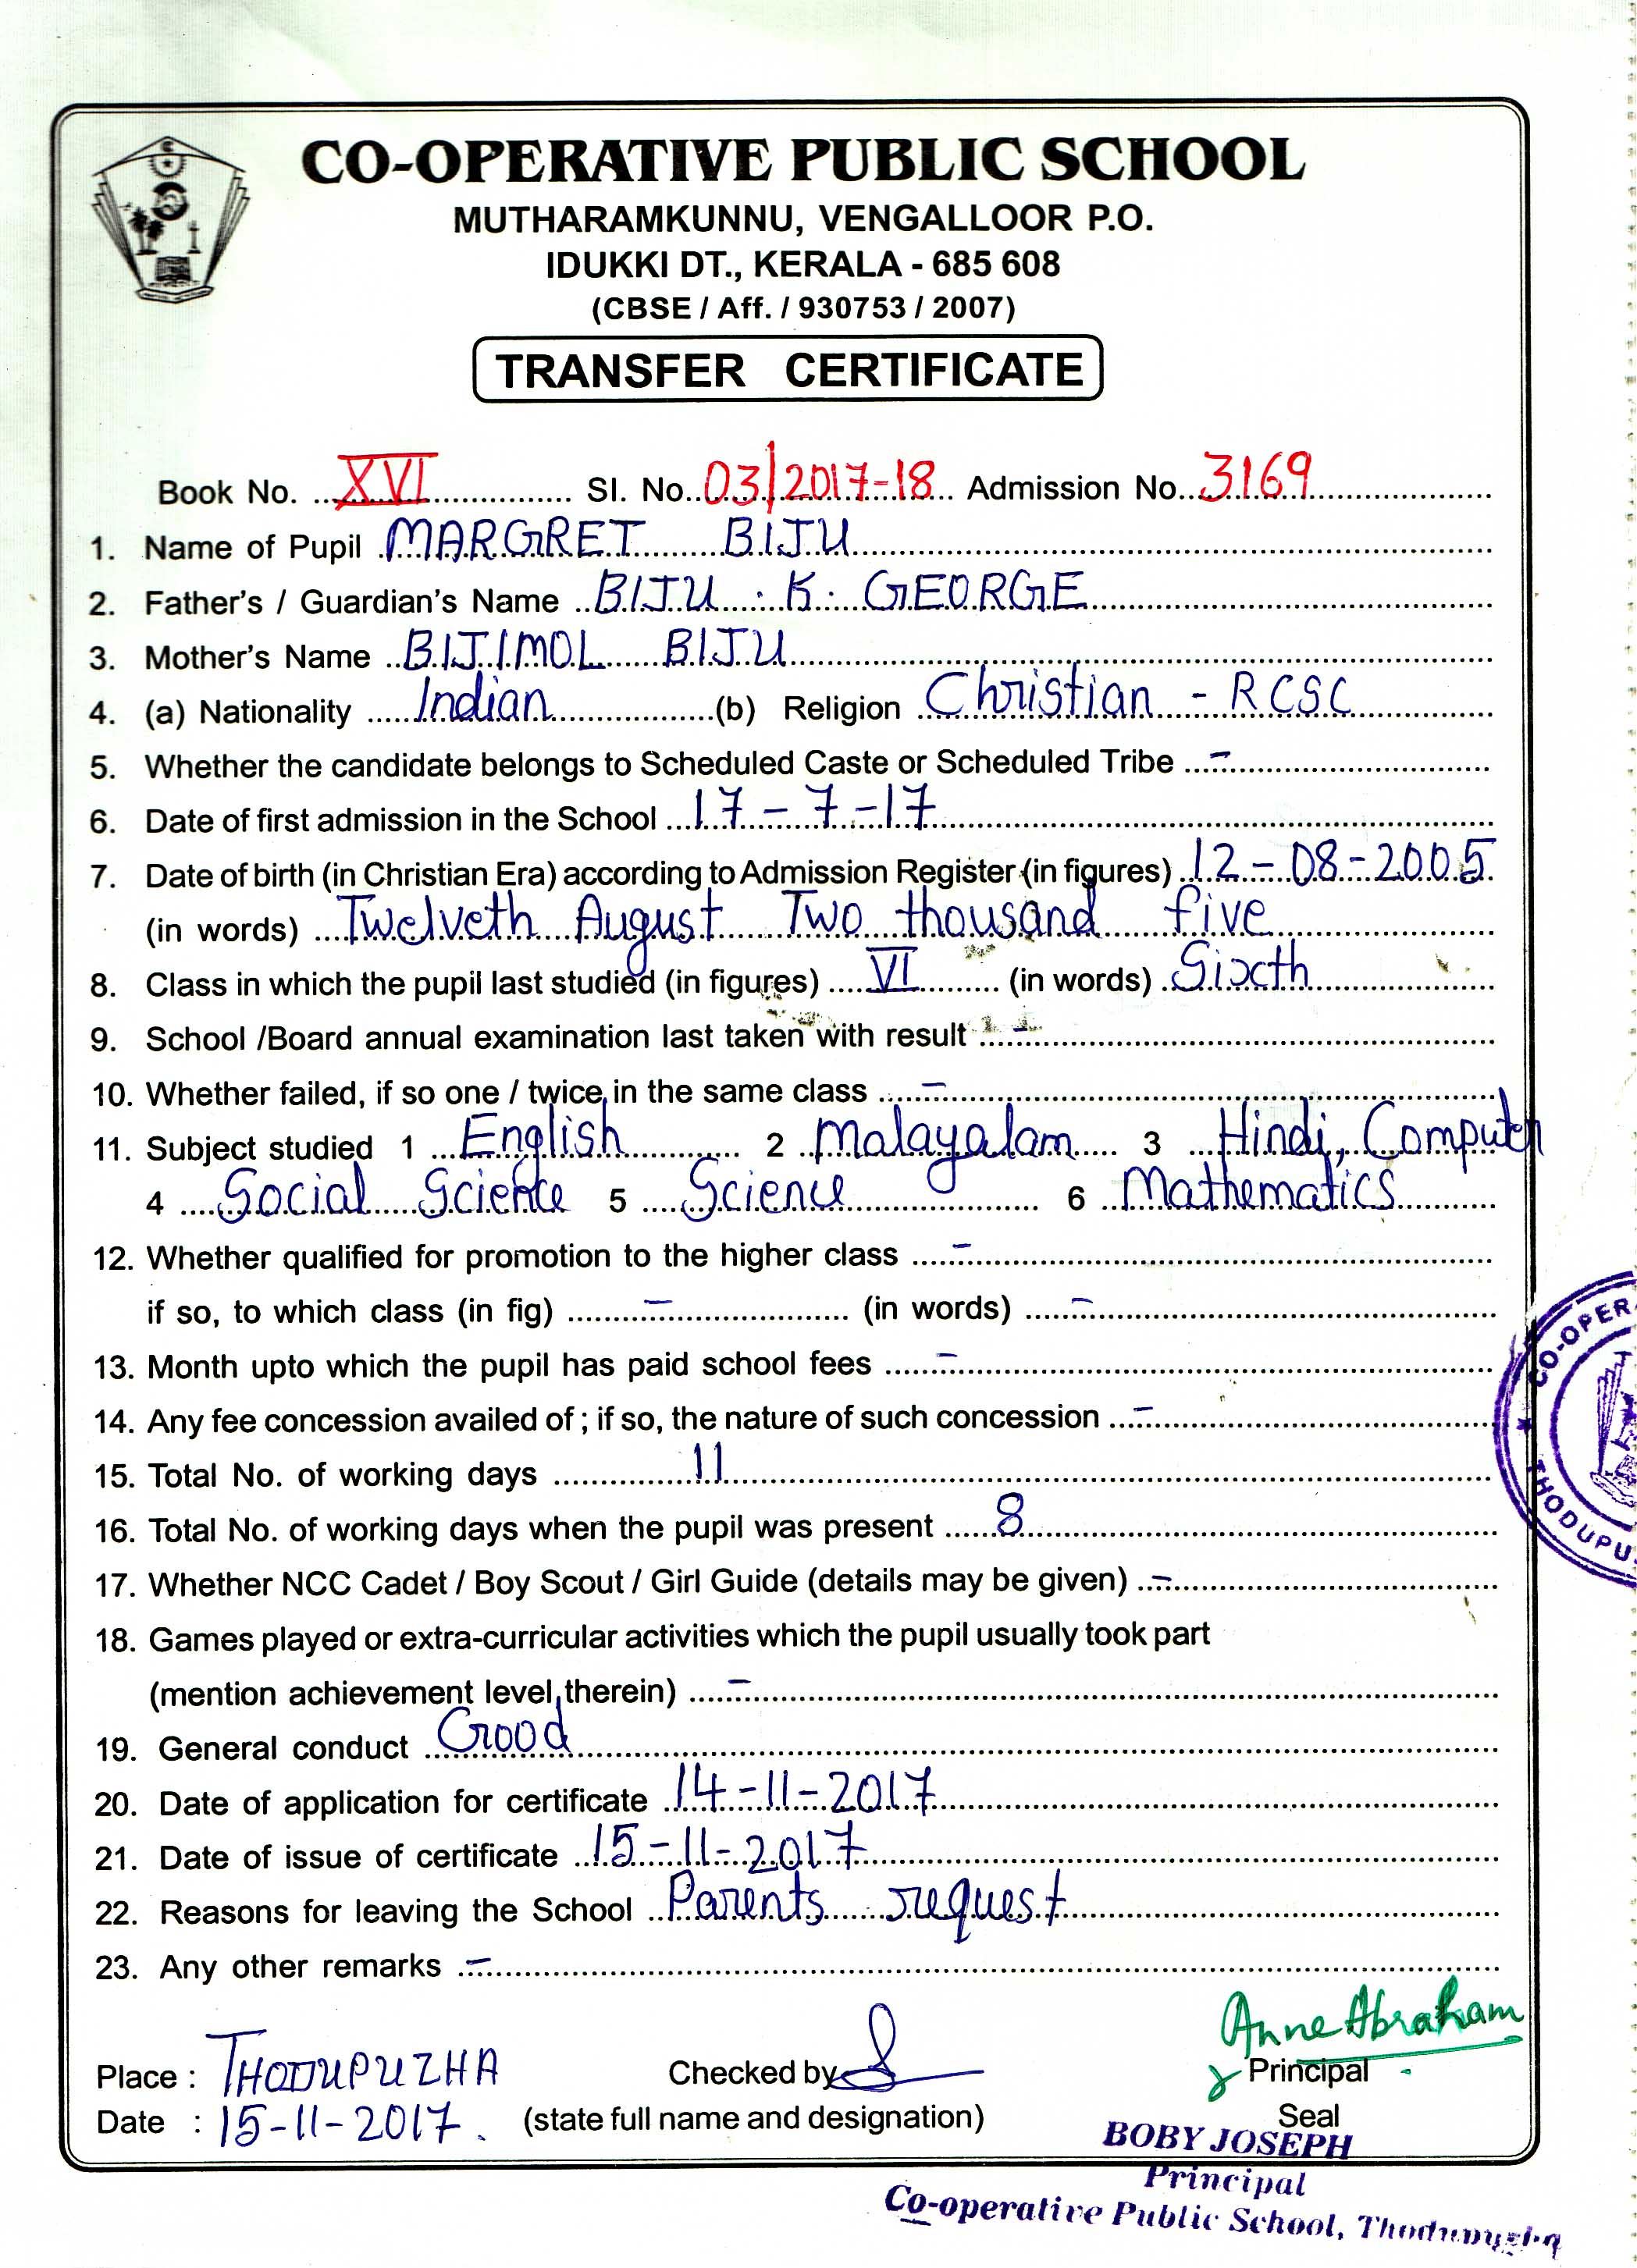 CO-OPERATIVE PUBLIC SCHOOL
MUTHARAMKUNNU, VENGALLOOR P.O.
IDUKKI DT., KERALA - 685 608
(CBSE / Aff. / 930753 / 2007)
TRANSFER CERTIFICATE
Book No. XVI Sl. No. 03/2017-18 Admission No. 3169
1. Name of Pupil MARGRET BIJU
2. Father's / Guardian's Name BIJU . K . GEORGE
3. Mother's Name BIJIMOL BIJU
4. (a) Nationality Indian (b) Religion Christian - RCSC
5. Whether the candidate belongs to Scheduled Caste or Scheduled Tribe -
6. Date of first admission in the School 17-7-17
7. Date of birth (in Christian Era) according to Admission Register (in figures) 12-08-2005
(in words) Twelveth August Two thousand five
8. Class in which the pupil last studied (in figures) VI (in words) Sixth
9. School /Board annual examination last taken with result -
10. Whether failed, if so one / twice in the same class -
11. Subject studied 1 English 2 Malayalam 3 Hindi, Computer
4 Social Science 5 Science 6 Mathematics
12. Whether qualified for promotion to the higher class -
if so, to which class (in fig) - (in words) -
13. Month upto which the pupil has paid school fees -
14. Any fee concession availed of ; if so, the nature of such concession -
15. Total No. of working days 11
16. Total No. of working days when the pupil was present 8
17. Whether NCC Cadet / Boy Scout / Girl Guide (details may be given) -
18. Games played or extra-curricular activities which the pupil usually took part
(mention achievement level therein) -
19. General conduct Good
20. Date of application for certificate 14-11-2017
21. Date of issue of certificate 15-11-2017
22. Reasons for leaving the School Parents request
23. Any other remarks -
Anne Abraham
Place : THODUPUZHA Checked by Principal
Date : 15-11-2017. (state full name and designation) Seal
BOBY JOSEPH
Principal
Co-operative Public School, Thodupuzha
CO-OPER
THODUPU